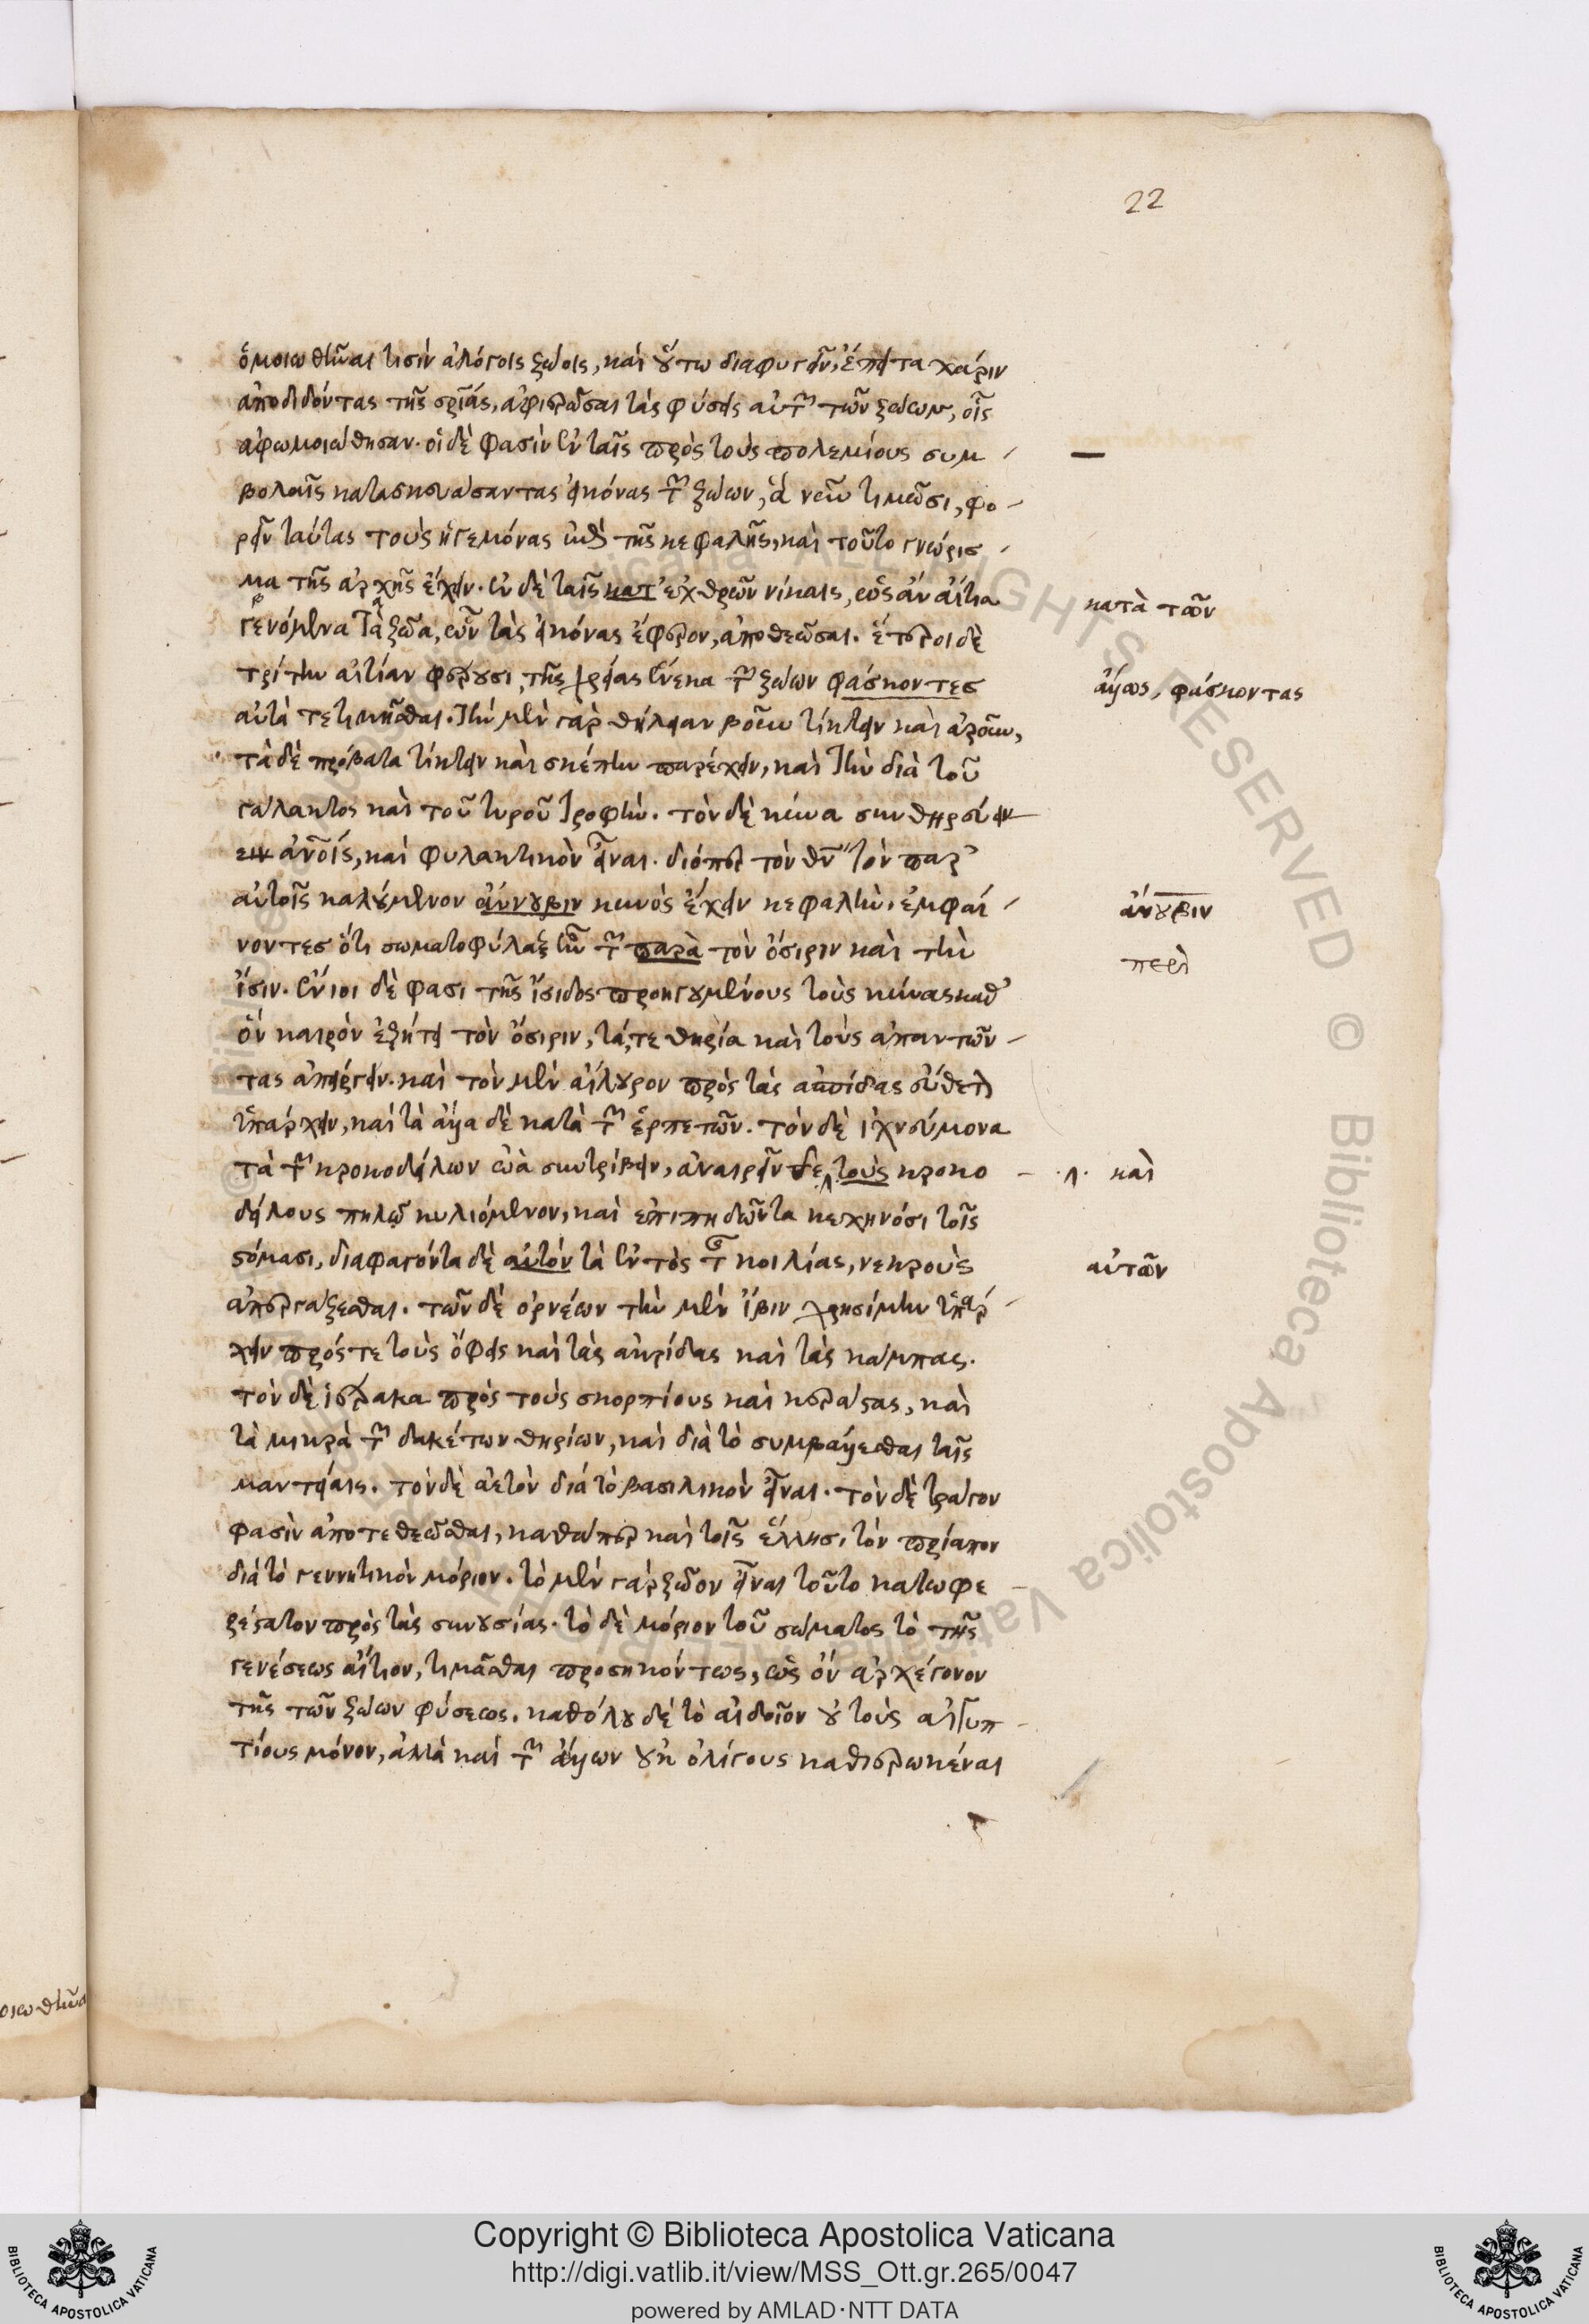 22
ὁμοιωθῆναι τισὶν ἀλόγοις ζώοις, καὶ οὕτω διαφυγεῖν, ἔπειτα χάριν
ἀποδιδόντας τῆς σωτηρίας, ἀφιερῶσαι τὰς φύσεις αὐτῶν τῶν ζώων, οἷς
ἀφωμοιώθησαν. οἱ δὲ φασὶν ἐν ταῖς πρὸς τοὺς πολεμίους συμ
βολαῖς κατασκευάσαντας εἰκόνας τῶν ζώων, ἃ νῦν τιμῶσι, φο
ρεῖν ταύτας τοὺς ἡγεμόνας ἐπὶ τῆς κεφαλῆς, καὶ τοῦτο γνώρισ
μα τῆς ἀρχῆς ἔχειν. ἐν δὲ ταῖς κατ' ἐχθρῶν νίκαις, ὡς ἂν αἴτια
κατὰ τῶν
γενόμενα τὰ ζῶα, ὧν τὰς εἰκόνας ἔφερον, ἀποθεῶσαι. ἕτεροι δὲ
τρίτην αἰτίαν φέρουσι, τῆς χρείας ἕνεκα τῶν ζώων φάσκοντες
ἄλλως, φάσκοντας
αὐτὰ τετιμῆσθαι. τὴν μὲν γὰρ θήλειαν βοῦν τίκτειν καὶ ἀροῦν,
τὰ δὲ πρόβατα τίκτειν καὶ σκέπην παρέχειν, καὶ τὴν διὰ τοῦ
γάλακτος καὶ τοῦ τυροῦ τροφήν. τὸν δὲ κύνα συνθηρεύειν
ειν ἀνοις, καὶ φυλακτικὸν εἶναι. διόπερ τὸν θν τὸν παρ'
αὐτοῖς καλούμενον ἄννουβιν κυνὸς ἔχειν κεφαλήν, ἐμφαί
ἄνουβιν
νοντες ὅτι σωματοφύλαξ ἦν τῶν παρὰ τὸν ὄσιριν καὶ τὴν
περὶ
ἶσιν. ἔνιοι δὲ φασι τῆς ἴσιδος προηγουμένους τοὺς κύνας καθ'
ὃν καιρὸν ἐζήτει τὸν ὄσιριν, τά τε θηρία καὶ τοὺς ἀπαντῶν
τας ἀπείργειν. καὶ τὸν μὲν αἴλουρον πρὸς τὰς ἀσπίδας εὔθετον
ὑπάρχειν, καὶ τὰ ἄλλα δὲ κατὰ τῶν ἑρπετῶν. τὸν δὲ ἰχνεύμονα
τὰ τῶν κροκοδείλων ὠὰ συντρίβειν, ἀναιρεῖν δὲ τοὺς κροκο
.λ. καὶ
δείλους πηλῷ κυλιόμενον, καὶ ἐπιπηδῶντα κεχηνόσι τοῖς
στόμασι, διαφαγόντα δὲ αὐτὸν τὰ ἐντὸς τῆς κοιλίας, νεκροὺς
αὐτῶν
ἀπεργάζεσθαι. τῶν δὲ ὀρνέων τὴν μὲν ἴβιν χρησίμην ὑπάρ
χειν πρός τε τοὺς ὄφεις καὶ τὰς ἀκρίδας καὶ τὰς κάμπας.
τὸν δὲ ἱέρακα πρὸς τοὺς σκορπίους καὶ κεράστας, καὶ
τὰ μικρὰ τῶν δακέτων θηρίων, καὶ διὰ τὸ συμβάλλεσθαι ταῖς
μαντείαις. τὸν δὲ ἀετὸν διὰ τὸ βασιλικὸν εἶναι. τὸν δὲ τράγον
φασὶν ἀποτεθεῶσθαι, καθάπερ καὶ τοῖς ἕλλησι τὸν πρίαπον
διὰ τὸ γεννητικὸν μόριον. τὸ μὲν γὰρ ζῶον εἶναι τοῦτο κατωφε
ρέστατον πρὸς τὰς συνουσίας. τὸ δὲ μόριον τοῦ σώματος τὸ τῆς
γενέσεως αἴτιον, τιμᾶσθαι προσηκόντως, ὡς ὂν ἀρχέγονον
τῆς τῶν ζώων φύσεως. καθόλου δὲ τὸ αἰδοῖον οὐ τοὺς αἰγυπ
τίους μόνον, ἀλλὰ καὶ τῶν ἄλλων οὐκ ὀλίγους καθιερωκέναι
Copyright © Biblioteca Apostolica Vaticana
http://digi.vatlib.it/view/MSS_Ott.gr.265/0047
powered by AMLAD·NTT DATA